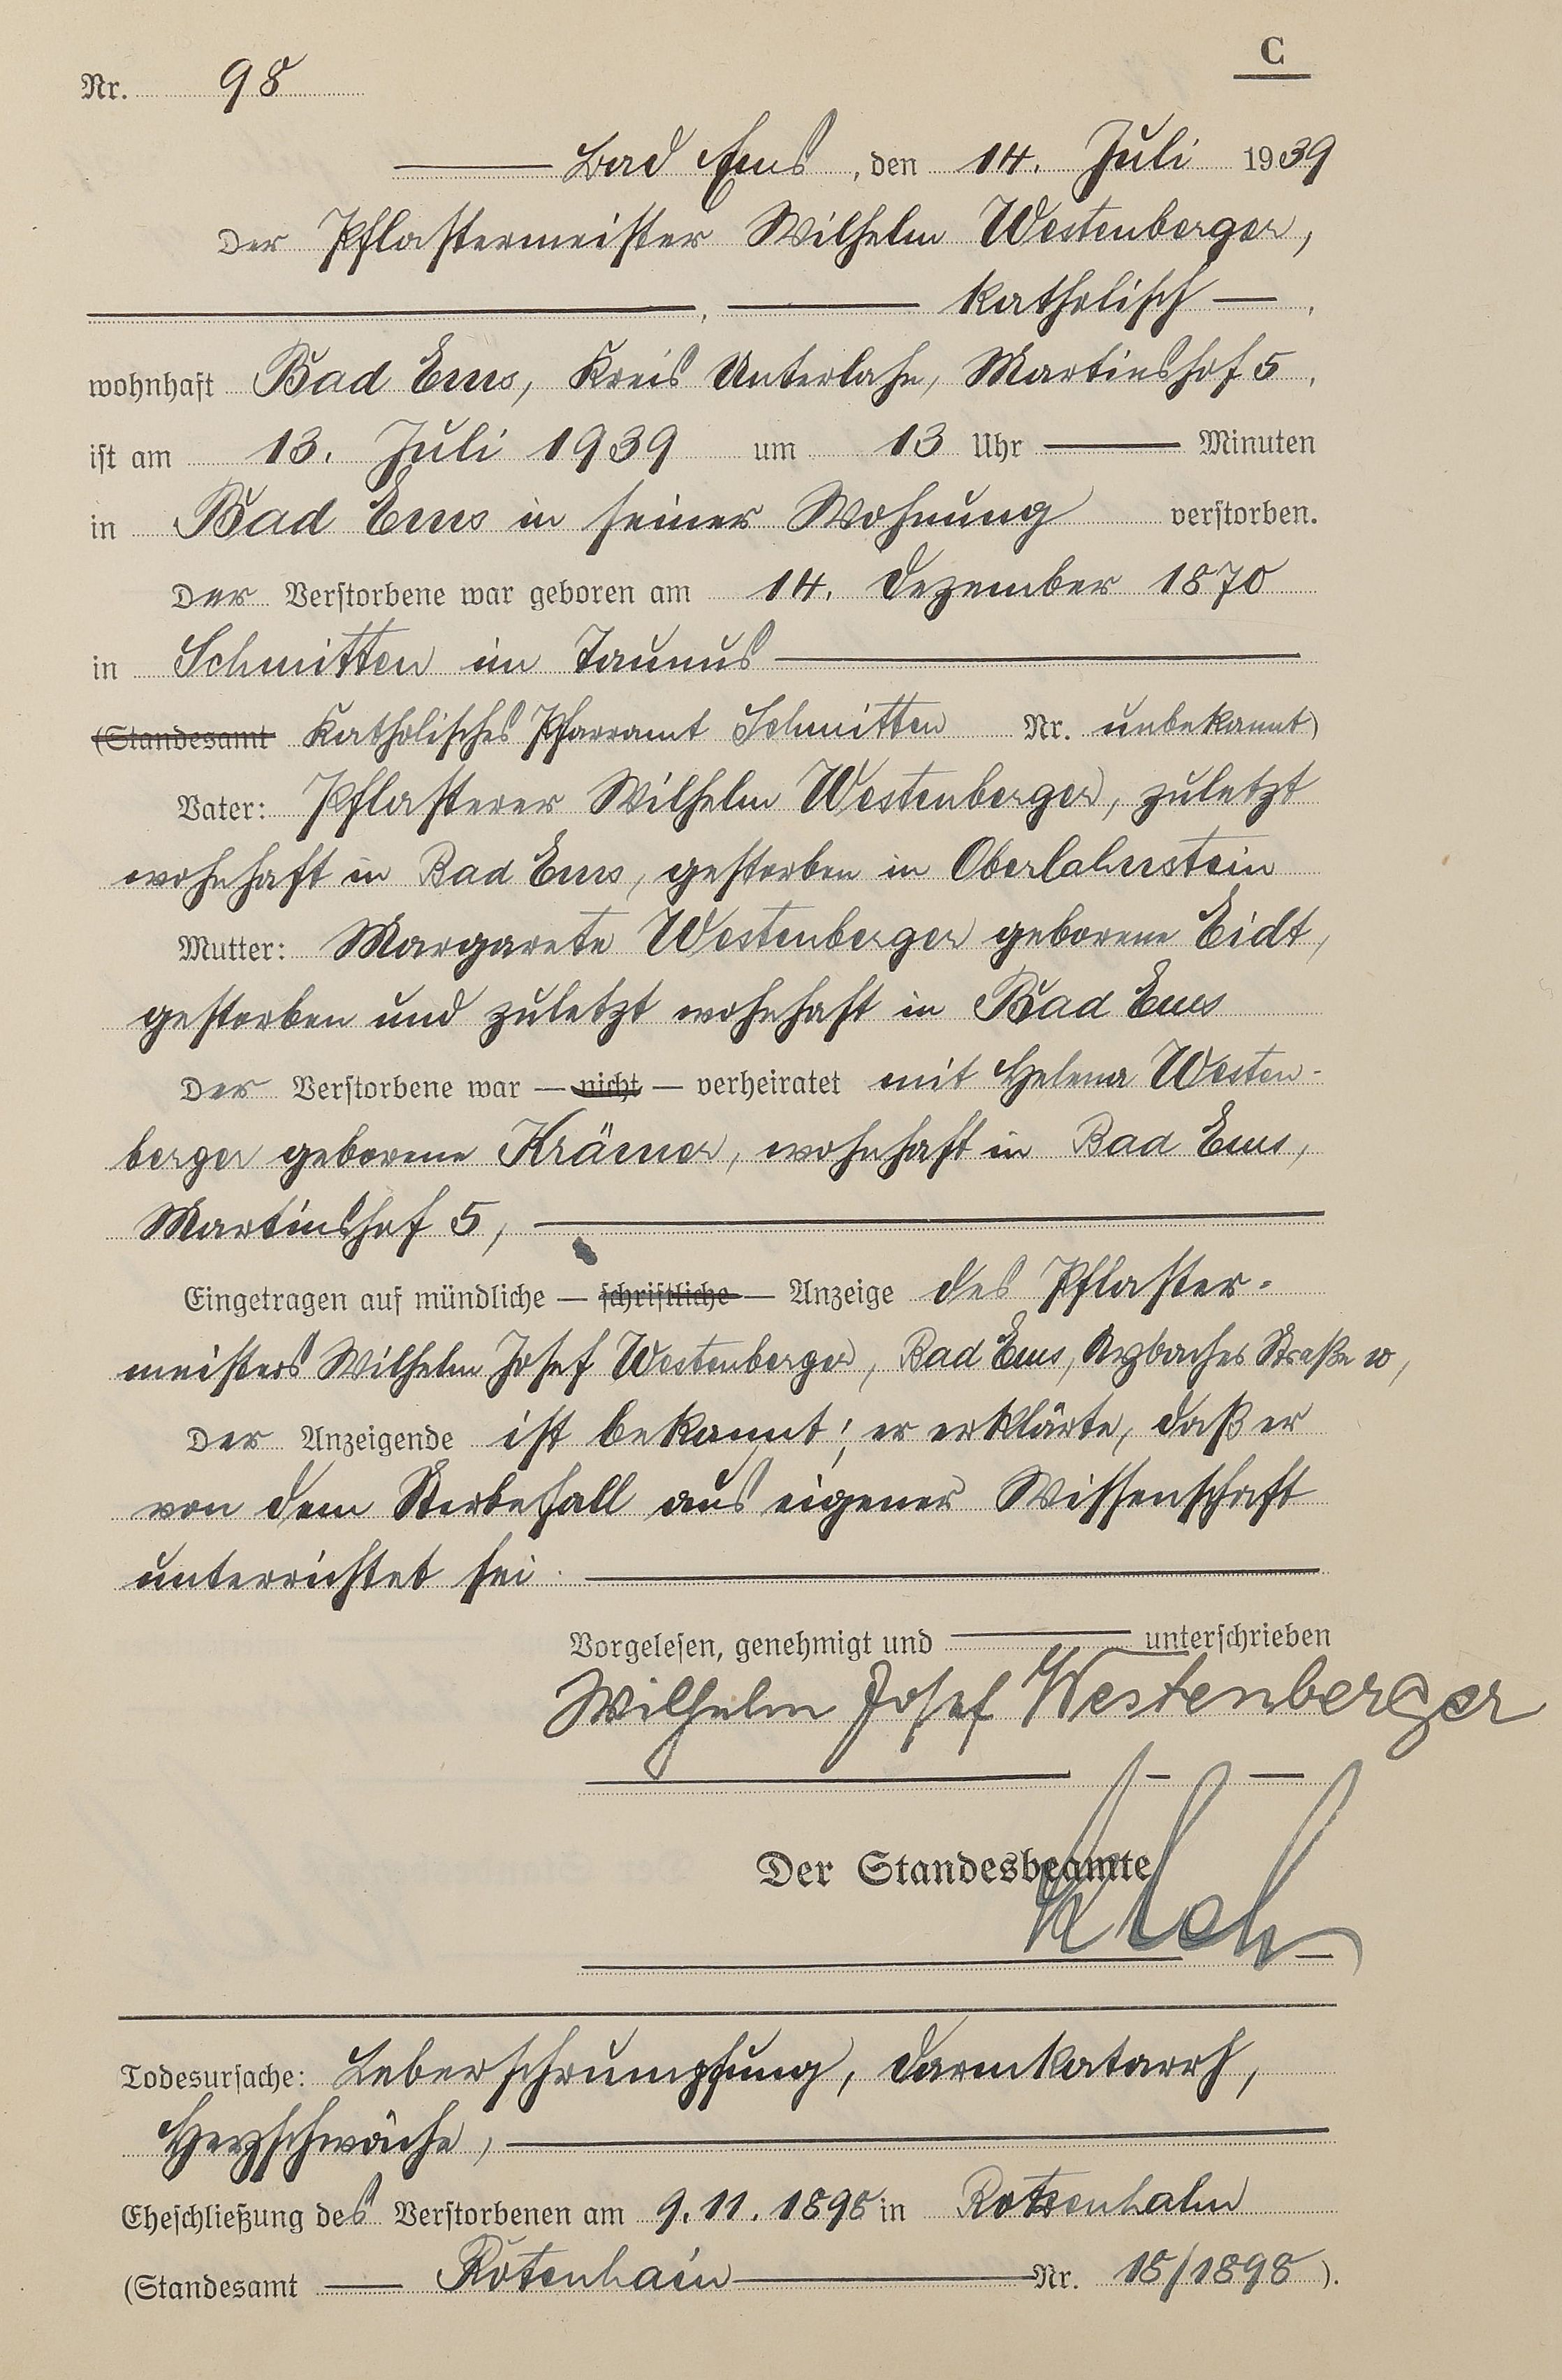 C
Nr. 98
Bad Ems, den 14. Juli 1939
Der Pflastermeister Wilhelm Westenberger,
, katholisch ,
wohnhaft Bad Ems, Kreis Unterlahn, Martinshof 5,
ist am 13. Juli 1939 um 13 Uhr Minuten
in Bad Ems in seiner Wohnung verstorben.
Der Verstorbene war geboren am 14. Dezember 1870
in Schmitten im Taunus
(Standesamt Katholisches Pfarramt Schmitten Nr. unbekannt)
Vater: Pflasterer Wilhelm Westenberger, zuletzt
wohnhaft in Bad Ems, gestorben in Oberlahnstein
Mutter: Margarete Westenberger geborene Eidt,
gestorben und zuletzt wohnhaft in Bad Ems
Der Verstorbene war — nicht — verheiratet mit Helena Westen-
berger geborene Krämer, wohnhaft in Bad Ems,
Martinshof 5,
Eingetragen auf mündliche — schriftliche — Anzeige des Pflaster-
meisters Wilhelm Josef Westenberger, Bad Ems, Arzbacher Straße
Der Anzeigende ist bekannt; er erklärte, daß er
von dem Sterbefall aus eigener Wissenschaft
unterrichtet sei
Vorgelesen, genehmigt und unterschrieben
Wilhelm Josef Westenberger
Der Standesbeamte
Todesursache: Leberschrumpfung, Darmkatarrh,
Herzschwäche,
Eheschließung des Verstorbenen am 9.11.1898 in
(Standesamt Rotenhain Nr. 18/1898).